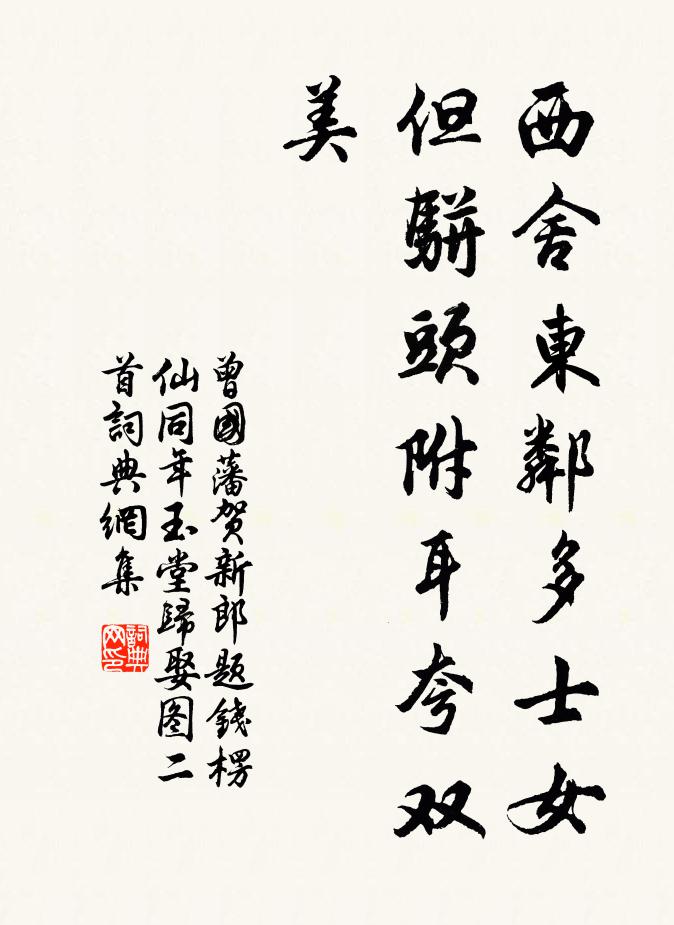 西舍東鄰多士女
但駢頭附耳夸双
美
曾國藩賀新郎题錢楞
仙同年玉堂歸娶图二
首詞典網集
詞典网印